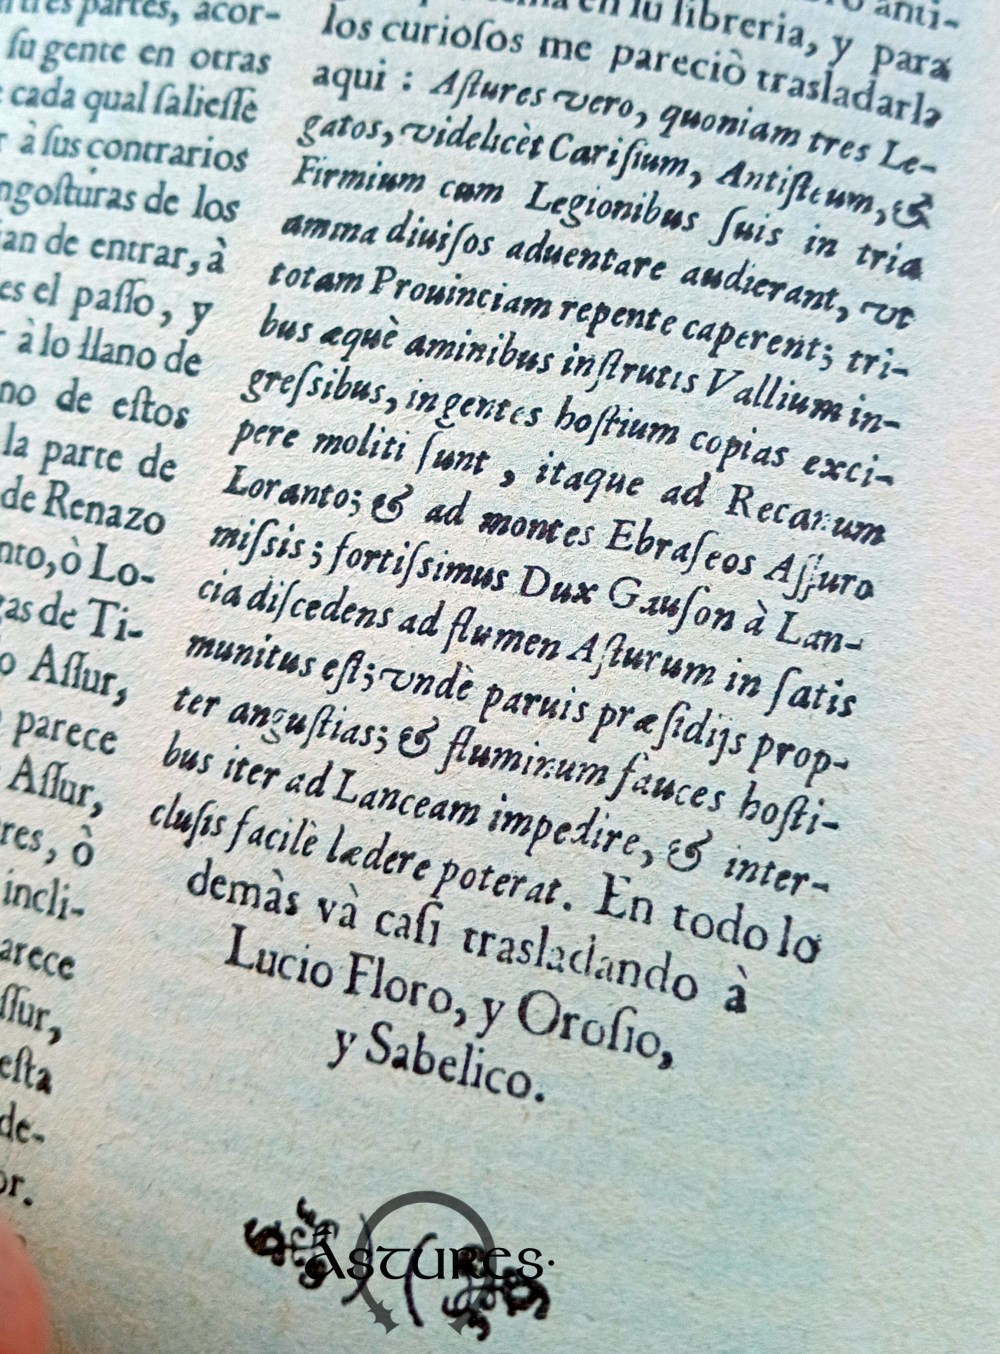 tres partes, acor-
ſu gente en otras
cada qual ſalieſſe
à ſus contrarios
ngoſturas de los
ian de entrar, à
es el paſſo, y
à lo llano de
no de eſtos
la parte de
de Renazo
nto, ò Lo-
gas de Ti-
o Aſſur,
parece
Aſſur,
res, ò
incli-
arece
ſſur,
eſta
de-
or.
en ſu libreria, y para
los curioſos me pareciò trasladarla
aqui : Aſtures vero, quoniam tres Le-
gatos, videlicèt Cariſium, Antiſteum, &
Firmium cum Legionibus ſuis in tria
amma diuiſos aduentare audierant, vt
totam Prouinciam repente caperent; tri-
bus æquè aminibus inſtrutis Vallium in-
greſsibus, ingentes hoſtium copias exci-
pere moliti ſunt, itaque ad Recanum
Loranto; & ad montes Ebraſeos Aſſuro
miſsis; fortiſsimus Dux Gauſon à Lan-
cia diſcedens ad flumen Aſturum in ſatis
munitus eſt; vndè paruis præſidijs prop-
ter anguſtias; & fluminum fauces hoſti-
bus iter ad Lanceam impedire, & inter-
cluſis facilè lædere poterat. En todo lo
demàs và caſi trasladando à
Lucio Floro, y Oroſio,
y Sabelico.
ASTURES·